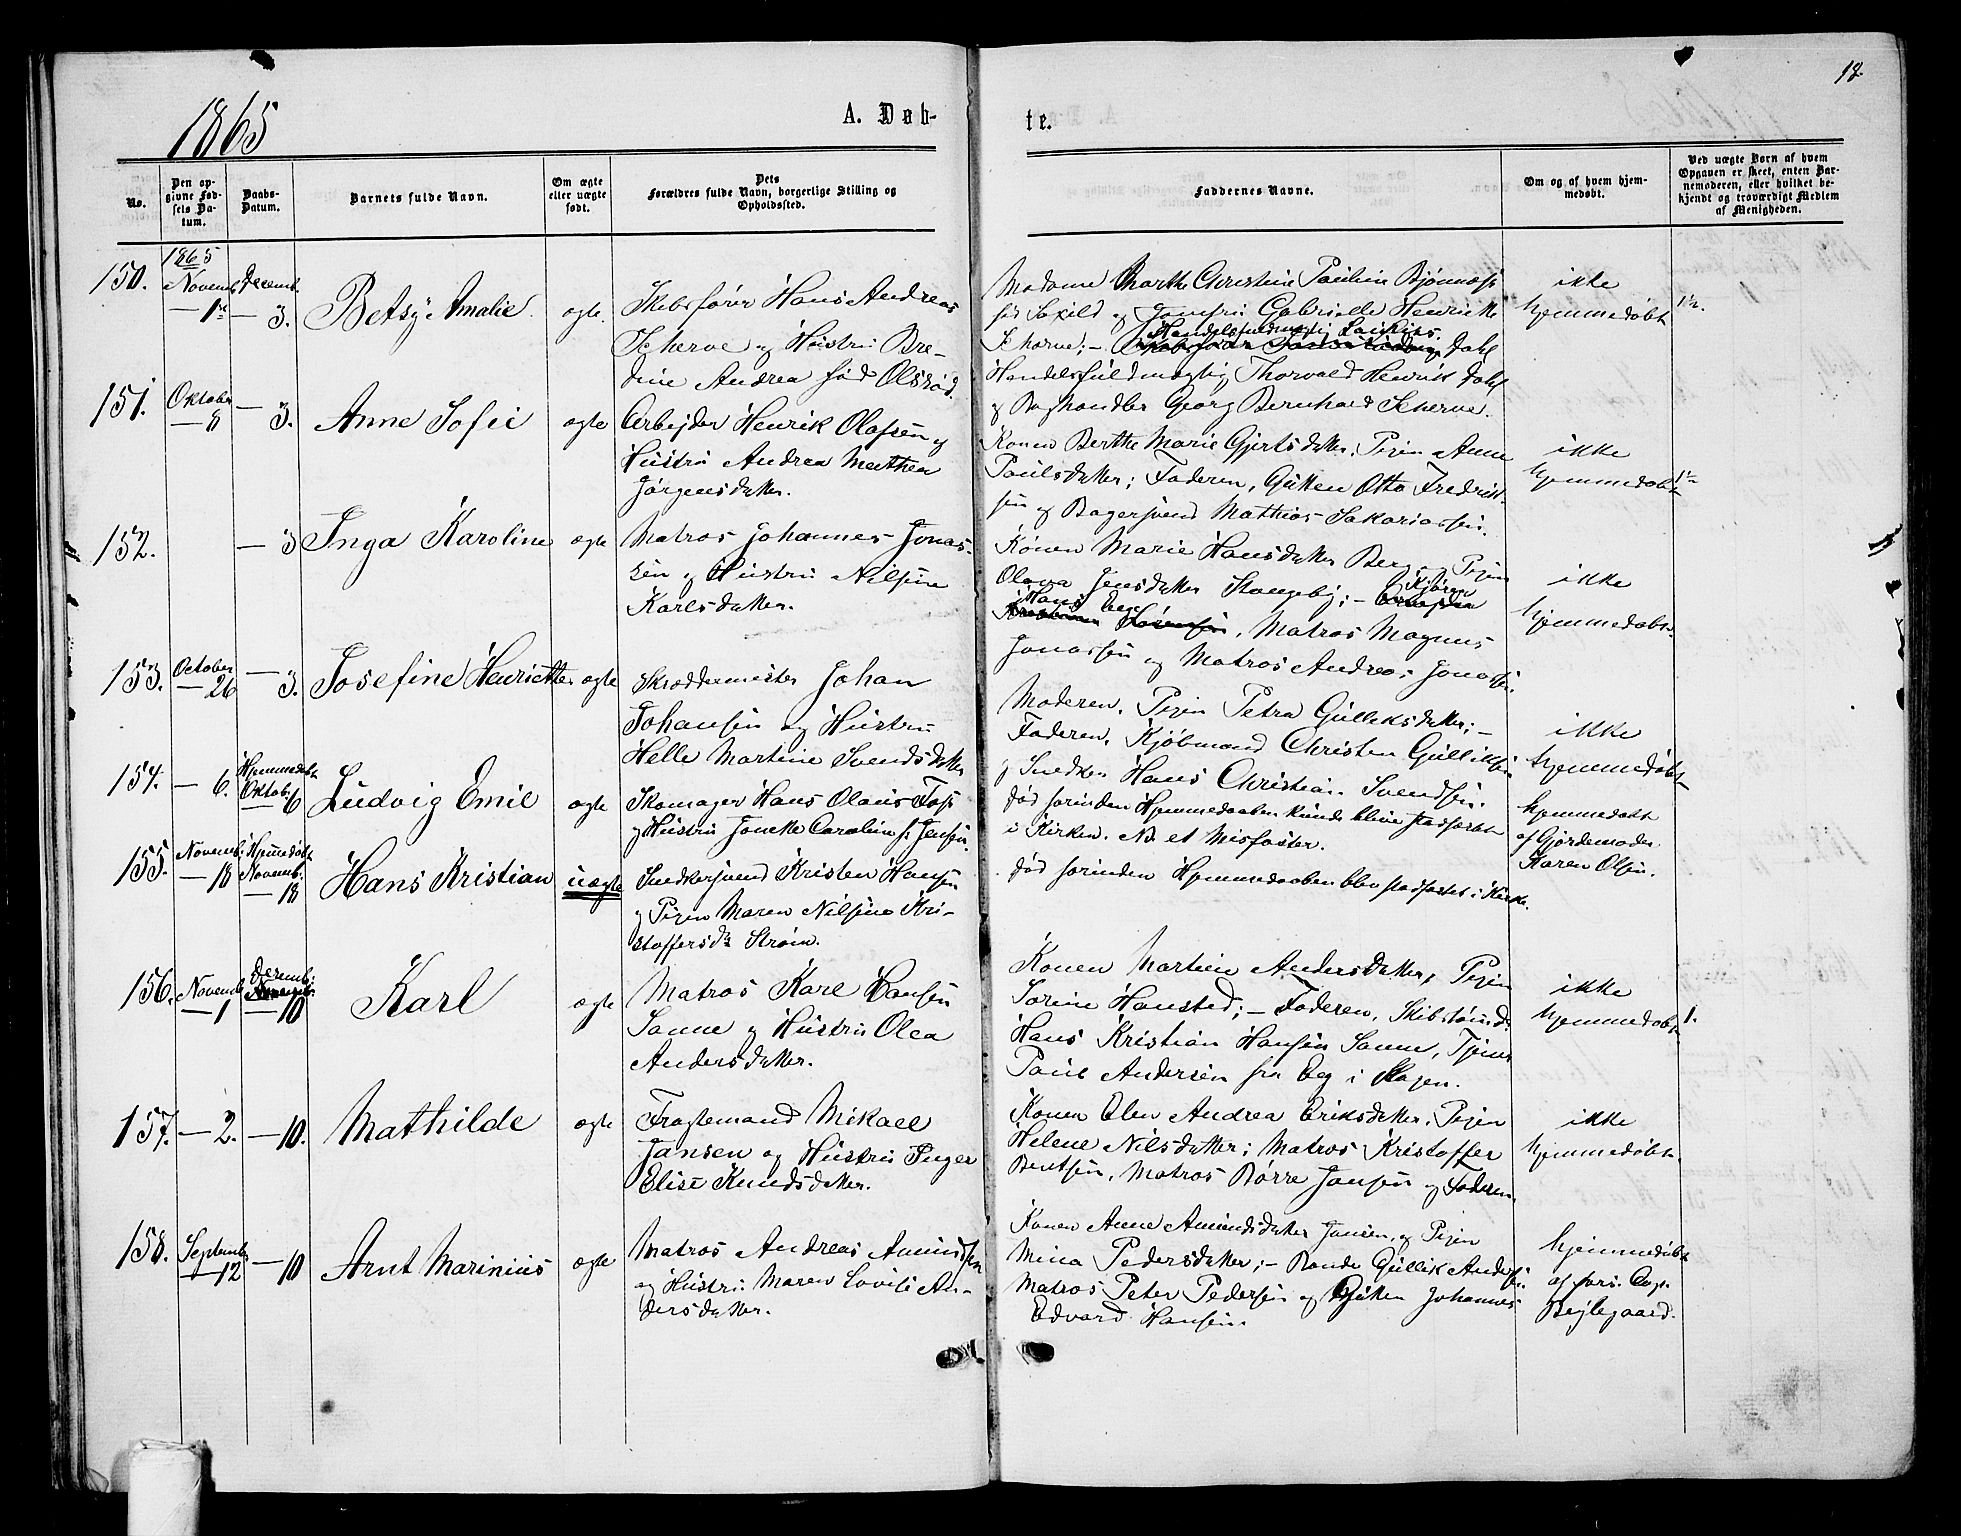 18.
1865
A. Døb-
te.
No.
Den op-
givne Fød-
sels Da-
tum.
Daabs-
Datum.
Barnets fulde Navn.
Om ægte
eller uægte
født.
Dets
Forældres fulde Navn, borgerlige Stilling og
Opholdssted.
Faddernes Navne.
Om og af hvem hjem-
medøbt.
Ved uægte Børn af hvem
Opgaven er skeet, enten Bar-
nemoderen, eller hvilket be-
kjendt og troværdigt Medlem
af Menigheden.
150.
1865
Novemb.
— 1ste
Decemb.
— 3.
Betsy Amalie
ægte.
Skibsfører Hans Andreas
Scherve og Hustru Bre-
dine Andrea fød Olsrød.
Madame Marthe Christine Pauline Bjønness
fød Soxild og Jomfru Gabrielle Henrikke
Scherve; — Handelsfuldmægtig Dahl
Handelsfuldmægtig Thorvald Henrik Dahl
og Boghandler Georg Bernhard Scherve.
ikke
hjemmedøbt
1½.
151.
Oktober
— 8
— 3.
Anne Sofie
ægte
Arbejder Henrik Olafsen og
Hustru Andrea Mathea
Jørgensdatter.
Konen Berthe Marie Gjertsdatter, Pigen Anne
Paulsdatter; Faderen, Gutten Otto Fredrik-
sen og Bagersvend Mathias Sakariassen.
ikke
hjemmedøbt
152.
— 3
Inga Karoline
ægte
Matros Johannes Jonas-
sen og Hustru Nilsine
Karlsdatter.
Konen Marie Hansdatter Berg og Pigen
Olava Jensdatter Stangeby; —
Hans, Matros Magnus
Jonassen og Matros Andreas Jonassen.
ikke
hjemmedøbt.
153.
October
— 26
— 3.
Josefine Henriette
ægte
Skræddermester Johan
Johansen og Hustru
Helle Martine Svendsdatter
Moderen, Pigen Petra Gulliksdatter; —
Faderen, Kjøbmand Christen Gulliksen
og Snedker Hans Christian Svendsen.
ikke
hjemmedøbt
154.
— 6.
Hjemmedøbt
Oktob.
— 6
Ludvig Emil
ægte
Skomager Hans Olaus Foss
og Hustru Janikke Caroline f. Jensen.
død forinden Hjemmedaaben kunde blive stadfæstet
i Kirken. NB. et Misfoster.
hjemmedøbt
af Gjordemoder
Karen Olsen.
155.
Novemb.
— 18
Hjemmedøbt
Novemb.
— 18
Hans Kristian
uægte
Snedkersvend Kristen Hansen
og Pigen Maren Nilsine Kri-
stoffersdr Strøm.
død forinden Hjemmedaaben blev stadfæstet i Kirke.
156.
Novemb.
— 1
Decemb.
— 10
Karl
ægte
Matros Karl Hansen
Sanne og Hustru Olea
Andersdatter.
Konen Martine Andersdatter, Pigen
Sorine Hansted; — Faderen, Skibstømmd.
Hans Kristian Hansen Sanne, Tjener
Paul Andersen fra Eeg i Skagen.
ikke
hjemmedøbt
1.
157.
— 2.
— 10.
Mathilde
ægte
Fragtemand Mikael
Jansen og Hustru Inger
Elise Knudsdatter.
Konen Elen Andrea Eriksdatter, Pigen
Helene Nilsdatter; Matros Kristoffer
Bentsen, Matros Børre Jansen og Faderen
ikke
hjemmedøbt.
158.
Septemb.
— 12
— 10
Arnt Marinius
ægte
Matros Andreas Amundsen
og Hustru Maren Lovise An-
dersdatter.
Konen Anne Amundsdatter Jansen, og Pigen
Mina Pedersdatter; — Bonde Gullik Andersen
Matros Peter Pedersen og Gutten Johannes
Edvard Hansen.
hjemmedøbt
af
Bejlegaard.